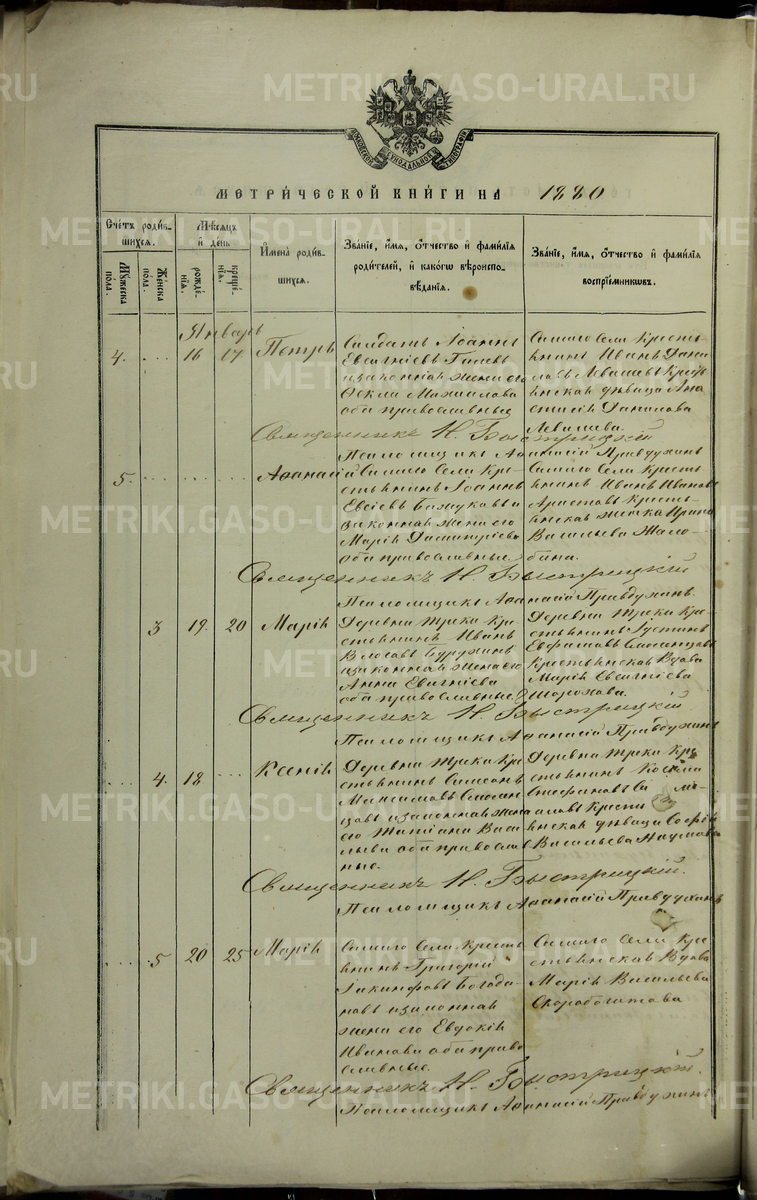 METRIKI.GASO-URAL.RU
МОСКОВСКОЙ СѴНОДАЛЬНОЙ ТИПОГРАФІИ
МЕТРИ́ЧЕСКОЙ КНИ́ГИ НА 1880
Счётъ роди́вшихся.
Мꙋжеска пола.
Женска пола.
Мѣсяцъ и҆ день
рожденїѧ.
крещенїѧ.
И҆мена̀ роди́вшихся.
Зва́нїе, и҆́мѧ, ѻ҆́тчество и҆ фами́лїѧ родителей, и҆ какогѡ вѣроисповѣданїѧ.
Зва́нїе, и҆́мѧ, ѻ҆́тчество и҆ фами́лїѧ воспрїемникѡвъ.
Январь
4. 16 17 Петръ
Солдатъ Іоаннъ
Евсигніевъ
и законная жена его
Ѳекла
оба православные
Самаго Села кресть-
янинъ Иванъ Дани-
ловъ Левашевъ Крест
янская дѣвица Ана
стасія Данилова
Левашева.
Священникъ Н. Быстрицкій
Псаломщикъ Аѳанасій Правдухинъ
5. Аѳанасій
Самаго Села Кре-
стьянинъ Іоаннъ
Евсіевъ
законная жена его
Марія Димитріева
оба православные
Самаго Села Кресть
янинъ Иванъ Ивановъ
Аристовъ Кресть-
янская женка Ирина
Васильева
Священникъ Н. Быстрицкій
Псаломщикъ Аѳанасій Правдухинъ
3 19. 20 Марія
Деревни Треки Кре-
стьянинъ Иванъ
и законная жена его
Анна Евсигніева
оба православные
Деревни Треки Кре-
стьянинъ Іустинъ
Крестьянская Вдова
Марія Евсигніева
Священникъ Н. Быстрицкій.
Псаломщикъ Аѳанасій Правдухинъ
4. 18 Ксенія
Деревни Треки Кре
стьянинъ Симеонъ
Максимовъ
и законная жена
его Татіана Васи
льева оба православ
ные.
Деревни Треки Кре
стьянинъ Косма
Стефановъ
янская дѣвица Софія
Васильева Наумова
Священникъ Н. Быстрицкій.
Псаломщикъ Аѳанасій Правдухинъ
5 20 25 Марія
Самаго Села кресть
янинъ Григорій
Іакинфовъ Богда
новъ и законная
жена его Евдокія
Иванова оба право
славные.
Самаго Села Кре
стьянская Вдова
Марія Васильева
Скоробогатова
Священникъ Н. Быстрицкій.
Псаломщикъ Аѳанасій Правдухинъ